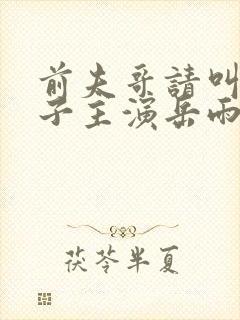 前夫哥請叫
子主演岳雨
茯苓半夏